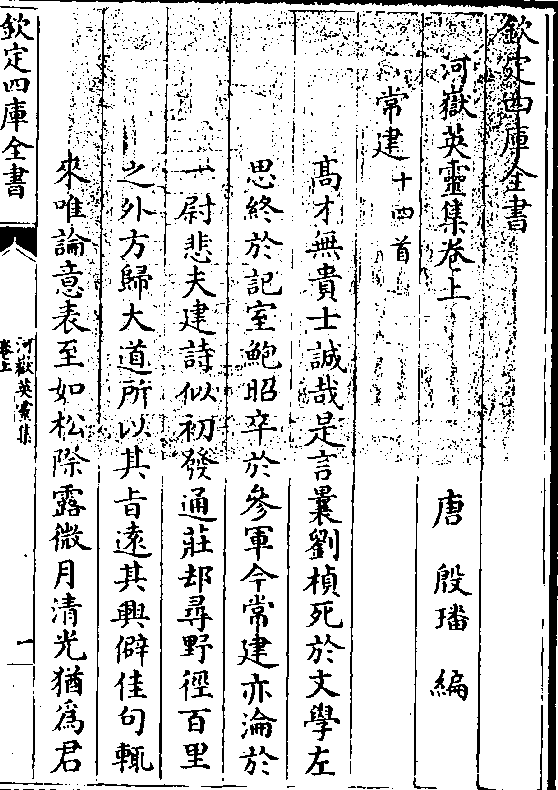 欽定四庫全書
河嶽英靈集卷上
唐 殷璠 編
常建十四首
髙才無貴士誠哉是言曩劉楨死於文學左
思終於記室鮑昭卒於參軍今常建亦淪於
一尉悲夫建詩似初發通莊却尋野徑百里
之外方歸大道所以其旨逺其興僻佳句輒
來唯論意表至如松際露微月清光猶爲君
欽定四庫全書
河嶽英靈集
卷上
一